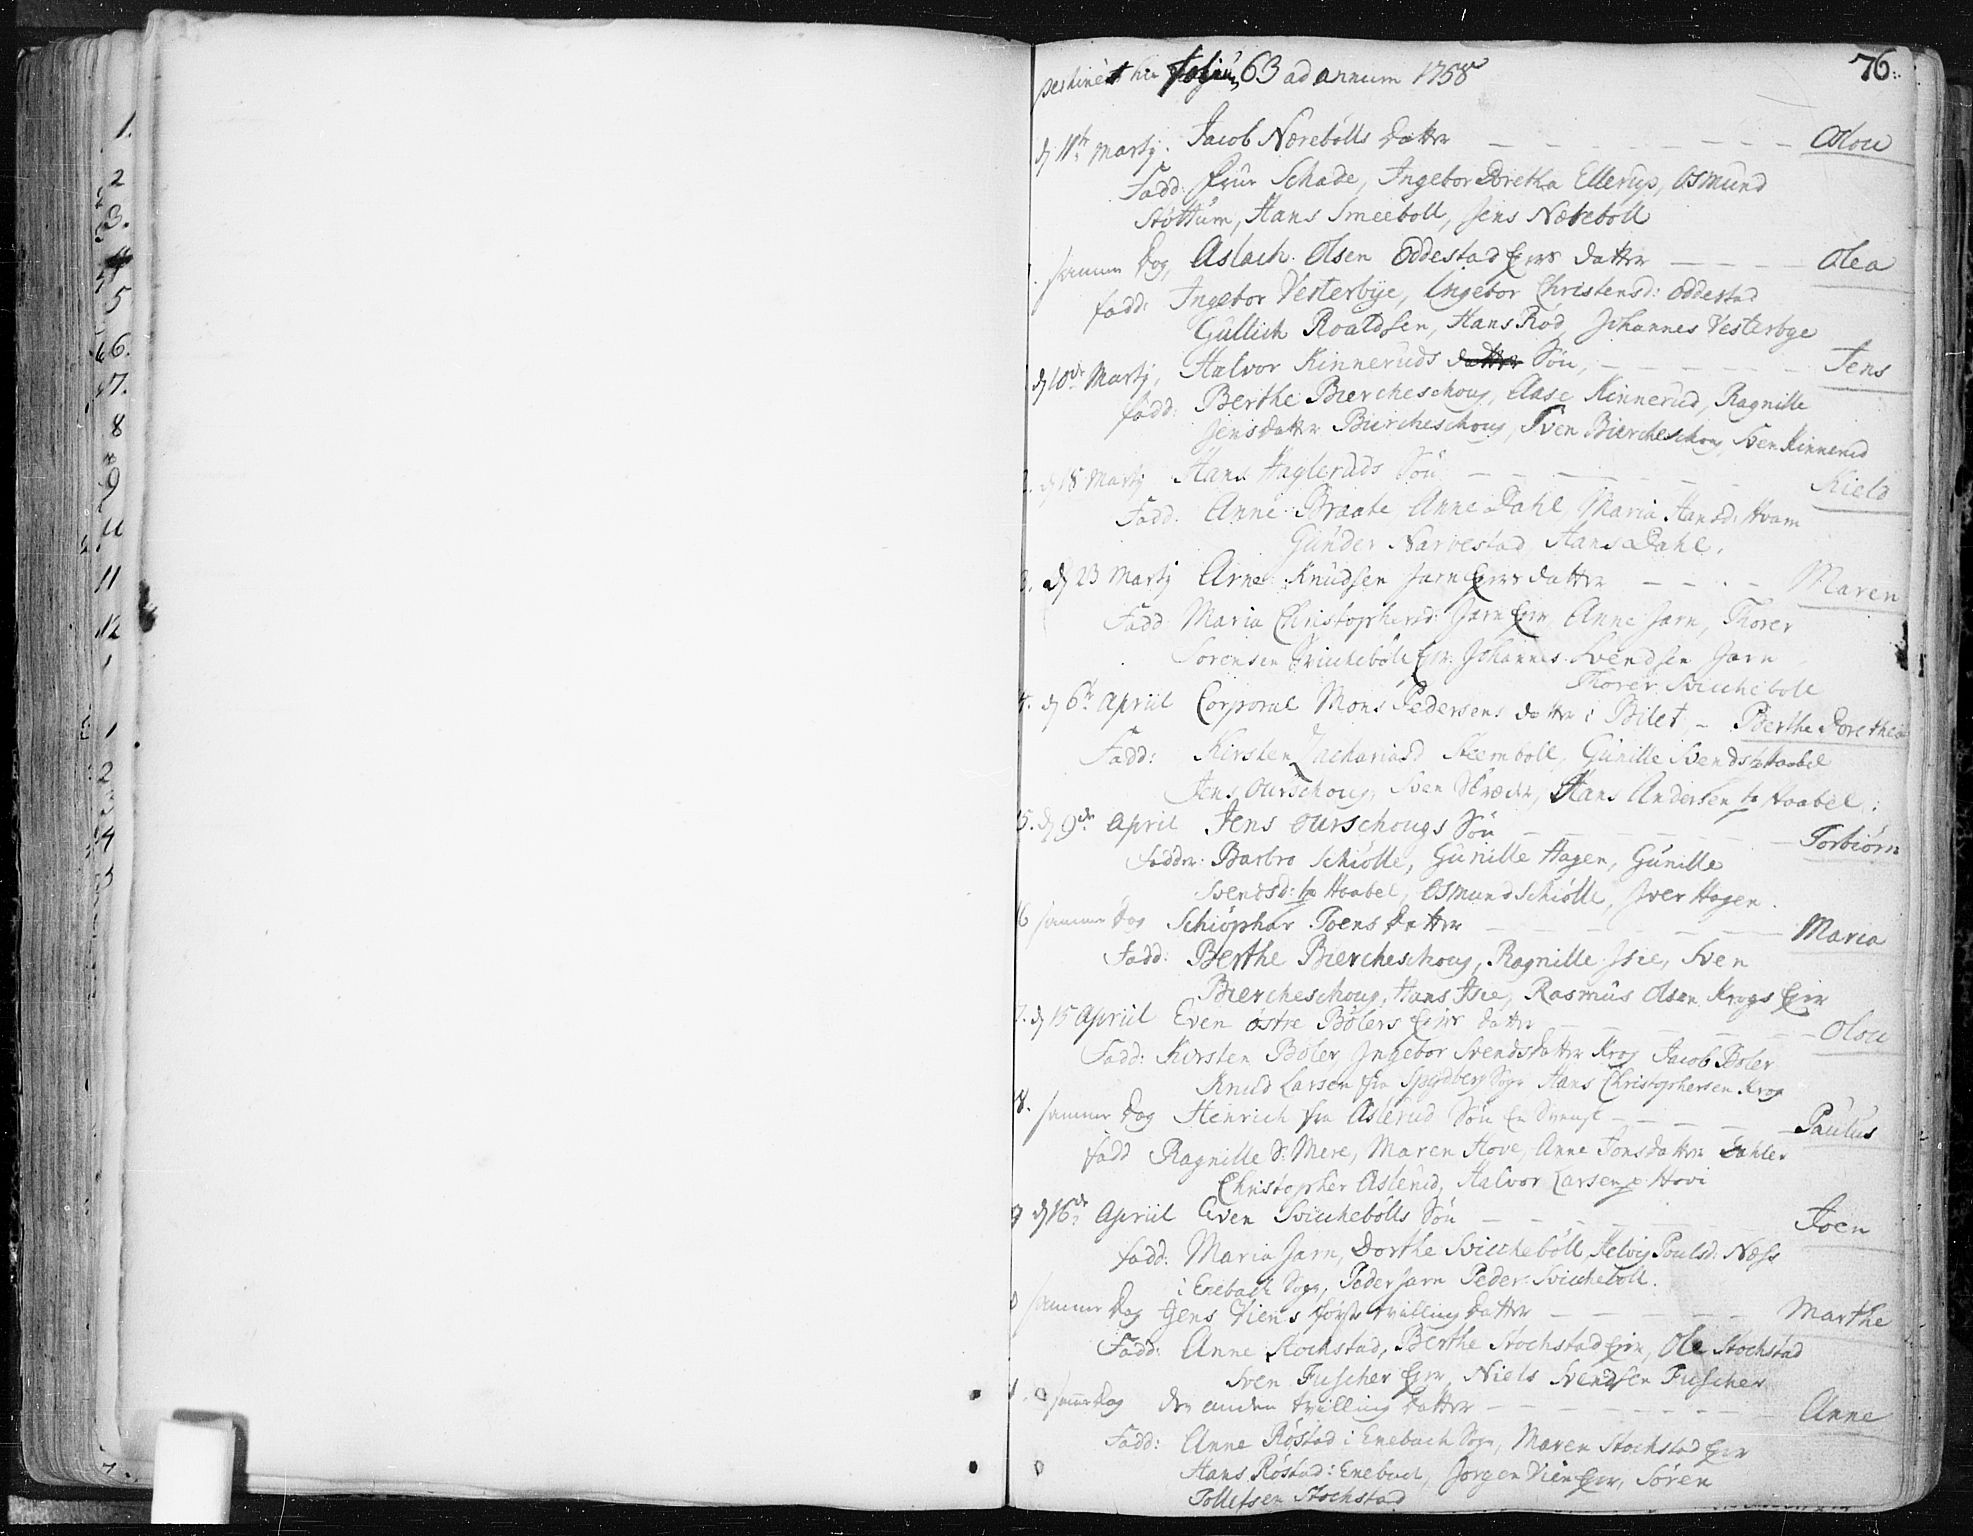 1.
2
3.
4
5
6.
7.
8
9
11
12
1
1
2
4
pertinet huc folium 63 ad annum 1758
76
d 11te Martj. Jacob Nærebølls Datter — Olou
Fadd: Frue Schade, Ingebor Doretha Ellerup, Osmund
Støttum, Hans Smeeboll, Jens Næreboll
samme Dag, Aslach Olsen Oddestad Eyers datter — Olea
fadd: Ingebor Vesterbye, Ingebor Christensd: Oddestad
Gullich Roaldsen, Hans Rød, Johannes Vesterbye
d 10de Martj, Halvor Kinneruds datter Søn, — Jens
fadd: Berthe Biercheschoug, Aase Kinnerud, Ragnille
Jensdatter Biercheschoug, Sven Biercheschoug Sven Kinnerud
d 18 Martj Hans Hagleruds Søn — Kield
Fadd. Anne Braate Anne Dahl, Maria Hansd: Hvam
Gunder Narvestad, Hans Dahl.
3. d 23 Martj Arne Knudsen Jarn Eyers datter — Maren
Fadd Maria Christophersd: Jarn Eyer, Anne Jarn, Thorer
Sørensen Svichebøll Eyer. Johannes Svendsen Jarn
Thorer Svicheboll
4. d 6te Apriil Corporal Mons Pedersens datter i Bilet - Berthe Dorethea
Fadd: Kirsten Zachariasd Steemboll, Gunille Svendsd Haabel
Jens Ourschoug, Sven Skræder, Hans Andersen fra Haabel:
15. d 9de April Jens Ourschougs Søn — Torbiørn
faddr: Barbro Schiølle, Gunille Hagen, Gunille
Svendsd: fra Haabel, Osmund Schiølle, Iver Hagen.
16 samme Dag Schiøphar Joens Datter — Maria
Fadd: Berthe Biercheschoug, Ragnille Isie, Sven
Biercheschoug, Hans Isie, Rasmus Olsen Krogs Eyer
7. d 15 Apriil Even østre Bølers Eyers datter — Olou
Fadd: Kirsten Bøler, Ingebor Svendsdatter Krog Jacob Bøler
Knud Larsen fra Spydberg Sogn, Hans Christophersen Krog
8. samme Dag Henrich fra Aslerud Søn — Paulus
fadd Ragnille S: Mere, Maren Hove, Anne Jonsdatter Dahler
Christopher Aslerud, Halvor Larsen Hovi
9 d 16de Apriil Even Svichebølls Søn — Joen
fadd: Maria Jarn, Dorthe Svichebøll, Helvig Poulsd: Næss
i Enebach Sogn, Peder Jarn Peder Svicheboll.
0 samme Dag Jens Viens første tvilling Datter — Marthe
Fadd: Anne Stochstad, Berthe Stochstad Eyer, Ole Stochstad
Sven Fuscher Eyer, Niels Svendsen Fuscher
1. samme Dag den anden tvilling Datter — Anne
Fadd: Anne Røstad i Enebach Sogn, Maren Stochstad Eyer
Hans Røstad: Enebach, Jørgen Vien Eyer, Søren
Tollefsen Stochstad